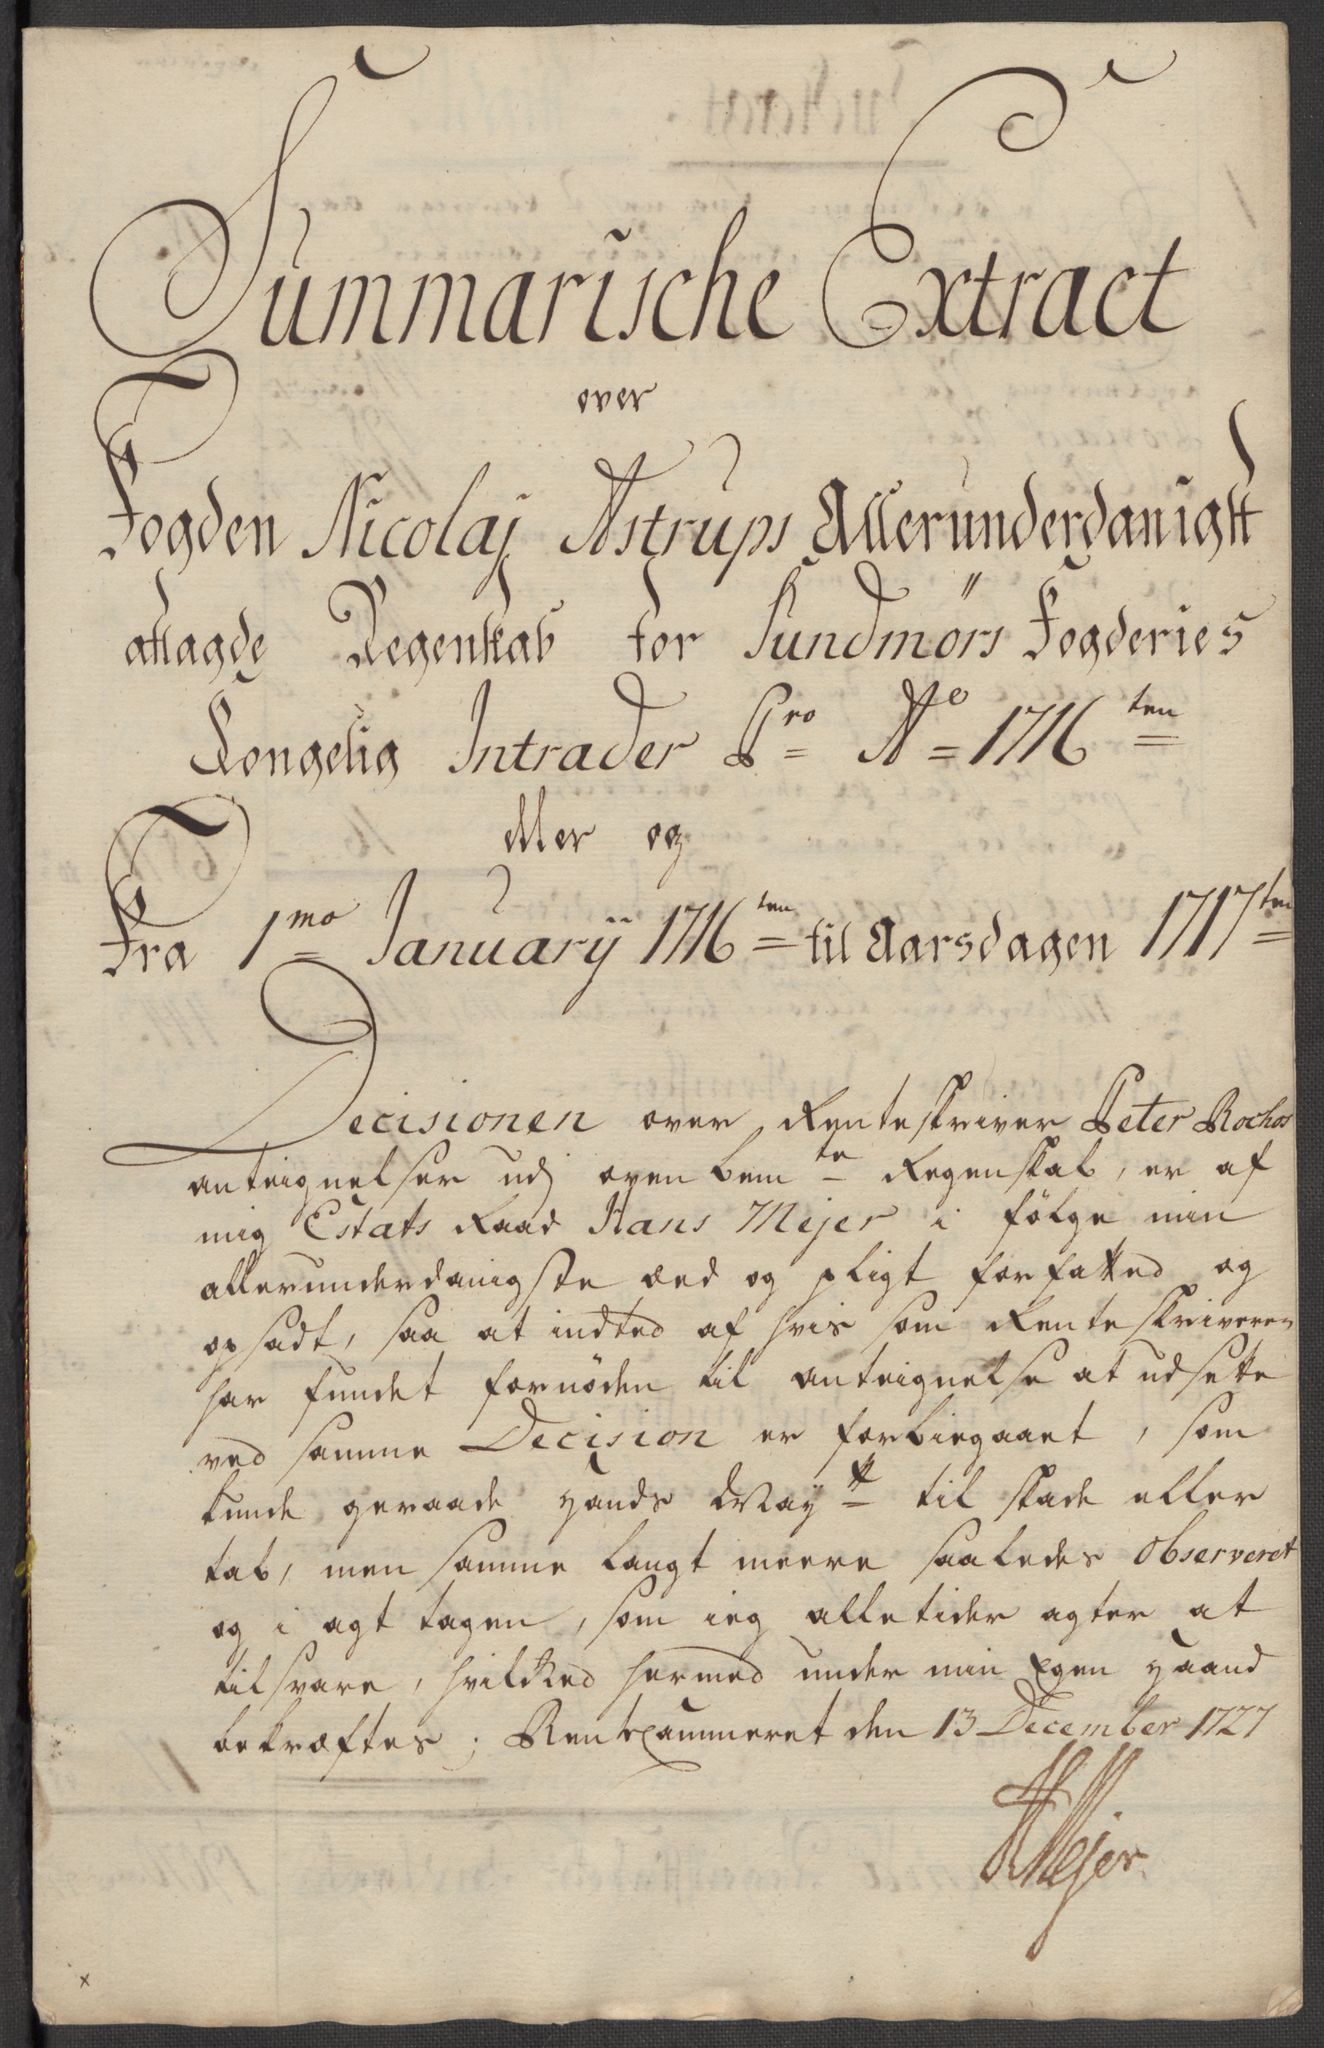 Summarische Extract
over
Fogden Nicolaj Astrups Allerunderdanigst
aflagde Regenskab for Sundmørs Fogderies
Kongelig Intrader Pro Ao 1716ten
eller og
Fra 1mo Januarij 1716ten til Aarsdagen 1717ten
Decisionen over Renteskriver Peter Rochos
anteignelser udj ovenbemte Regenskab, er af
mig Estats Raad Hans Mejer i følge min
allerunderdanigste æed og pligt forfatted og
opsadt, saa at indted af hvis som Renteskriveren
har fundet fornøden til anteignelse at udsette
ved samme Decision er forbiegaaet, som
kunde geraade hands Maytt til skade eller
tab, men samme langt meere saaledes observeret
og i agt tagen, som ieg alletider agter at
tilsvare, hvilcked hermed under min Egen haand
bekræftes; RenteCammeret den 13 December 1727
HMejer